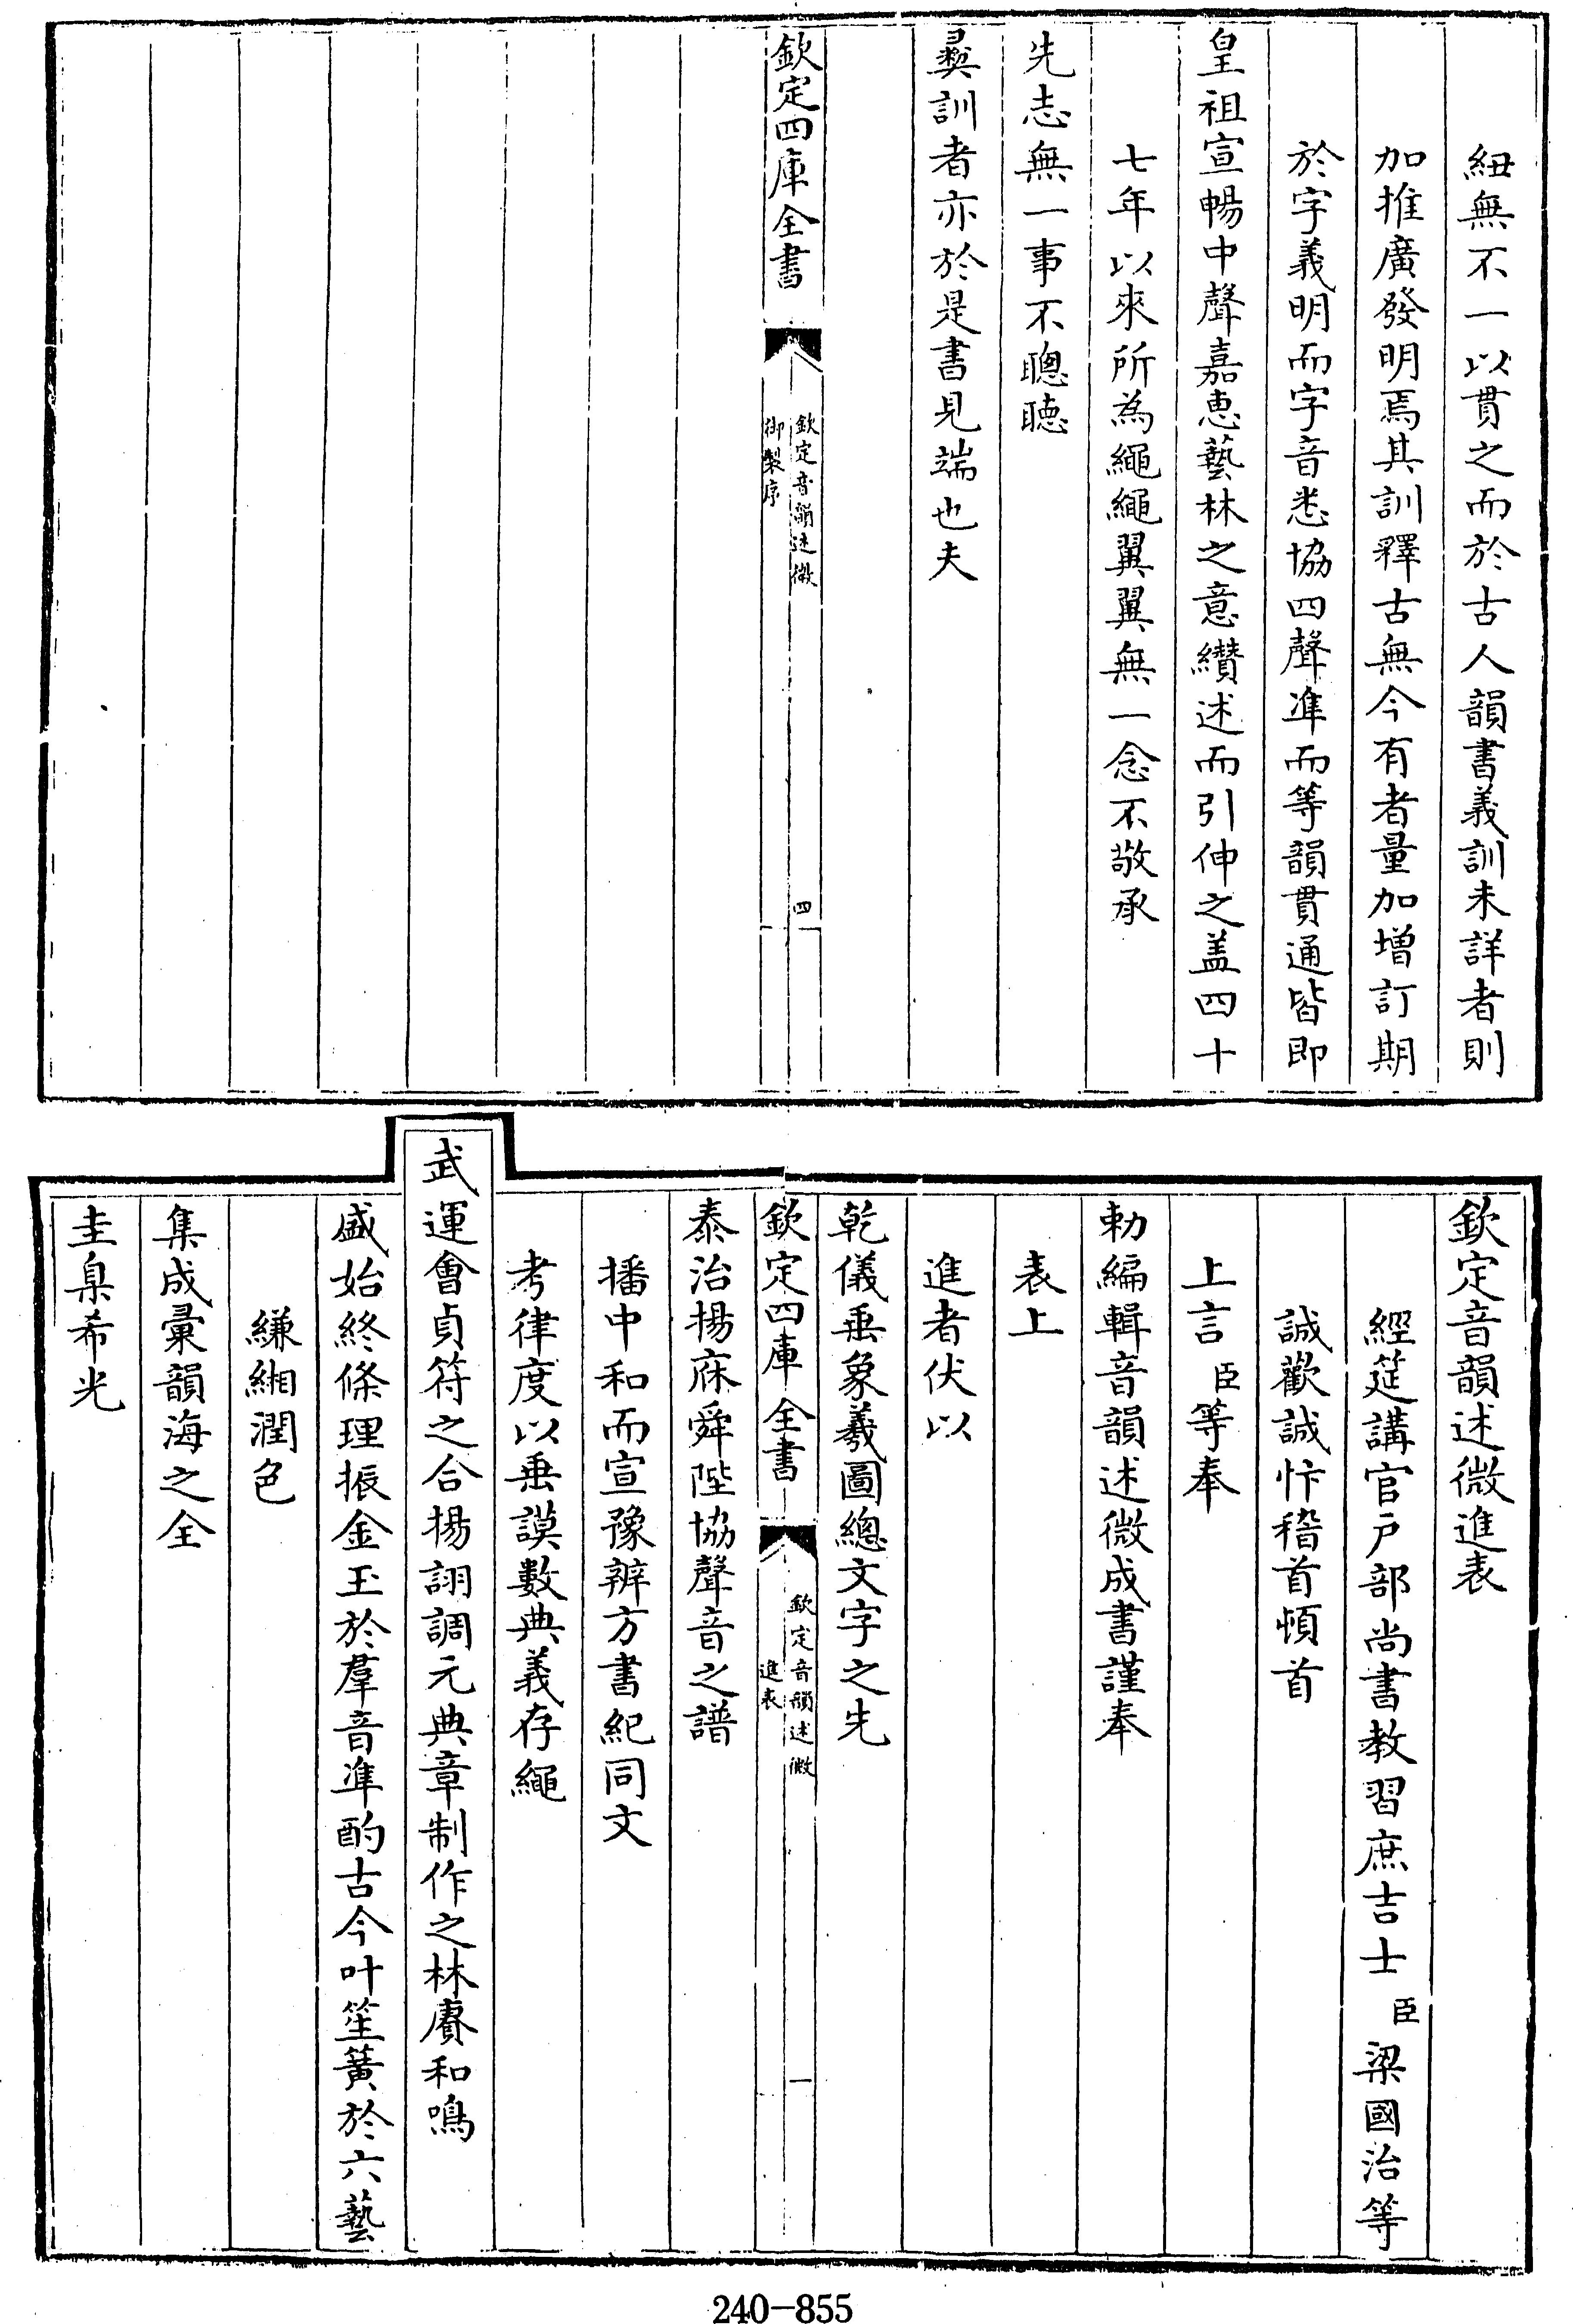 紐無不一以貫之而於古人韻書義訓未詳者則
加推廣發明焉其訓釋古無今有者量加增訂期
於字義明而字音悉協四聲準而等韻貫通皆即
皇祖宣暢中聲嘉惠藝林之意纘述而引伸之盖四十
七年以來所為繩繩翼翼無一念不敬承
先志無一事不聰聽
彞訓者亦於是書見端也夫
欽定四庫全書
欽定音韻述微
御製序
四
欽定音韻述微進表
經筵講官戶部尚書教習庶吉士臣梁國治等
誠歡誠忭稽首頓首
上言臣等奉
勅編輯音韻述微成書謹奉
表上
進者伏以
乾儀垂象羲圖總文字之先
欽定四庫全書
欽定音韻述微
進表
一
泰治揚庥舜陛協聲音之譜
播中和而宣豫辨方書紀同文
考律度以垂謨數典義存繩
武運會貞符之合揚詡調元典章制作之林賡和鳴
盛始終條理振金玉於羣音準酌古今叶笙簧於六藝
縑緗潤色
集成彙韻海之全
圭臬希光
240-855